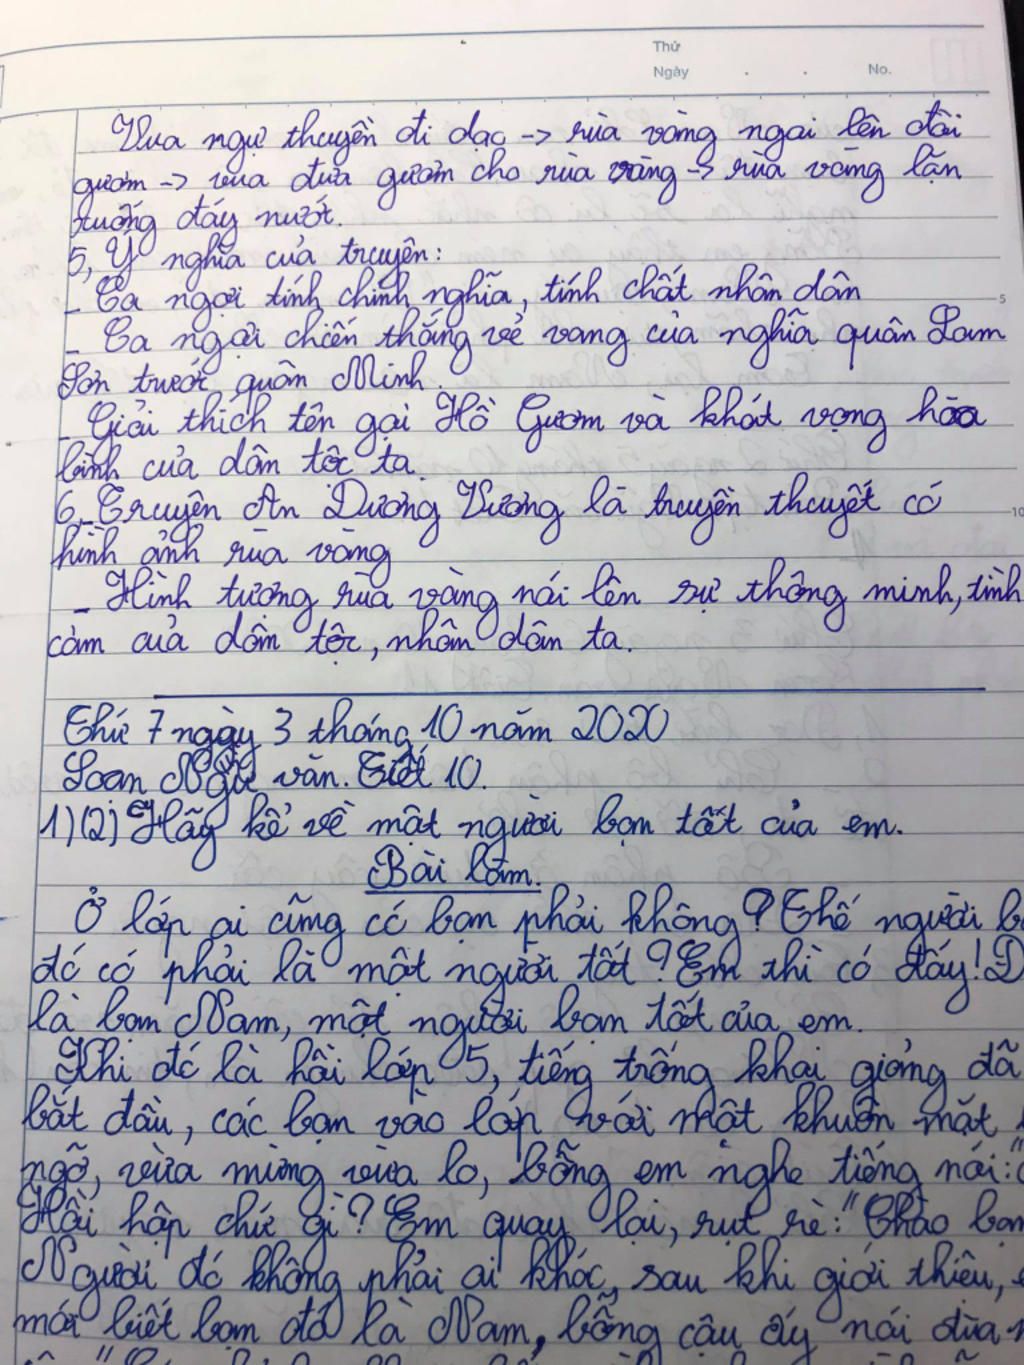 Thứ
Ngày . . No.
Vua ngự thuyền đi dạo -> rùa vàng ngoi lên đòi
gươm -> vua đưa gươm cho rùa vàng -> rùa vàng lặn
xuống đáy nước.
5, Ý nghĩa của truyện:
- Ca ngợi tính chính nghĩa, tính chất nhân dân
- Ca ngợi chiến thắng vẻ vang của nghĩa quân Lam
Sơn trước quân Minh.
- Giải thích tên gọi Hồ Gươm và khát vọng hòa
bình của dân tộc ta
6, Truyện An Dương Vương là truyền thuyết có
hình ảnh rùa vàng
- Hình tượng rùa vàng nói lên sự thông minh, tình
cảm của dân tộc, nhân dân ta.
Thứ 7 ngày 3 tháng 10 năm 2020
Soạn Ngữ văn. Tiết 10.
1) (2) Hãy kể về một người bạn tốt của em.
Bài làm.
Ở lớp ai cũng có bạn phải không? Thế người
đó có phải là một người tốt? Em thì có đấy!
là bạn Nam, một người bạn tốt của em.
Khi đó là hồi lớp 5, tiếng trống khai giảng đã
bắt đầu, các bạn vào lớp với một khuôn mặt
ngỡ, vừa mừng vừa lo, bỗng em nghe tiếng nói: "
Hồi hộp chứ gì? Em quay lại, rụt rè: "Chào bạn
Người đó không phải ai khác, sau khi giới thiệu,
mới biết bạn đó là Nam, bỗng cậu ấy nói đùa
5
10